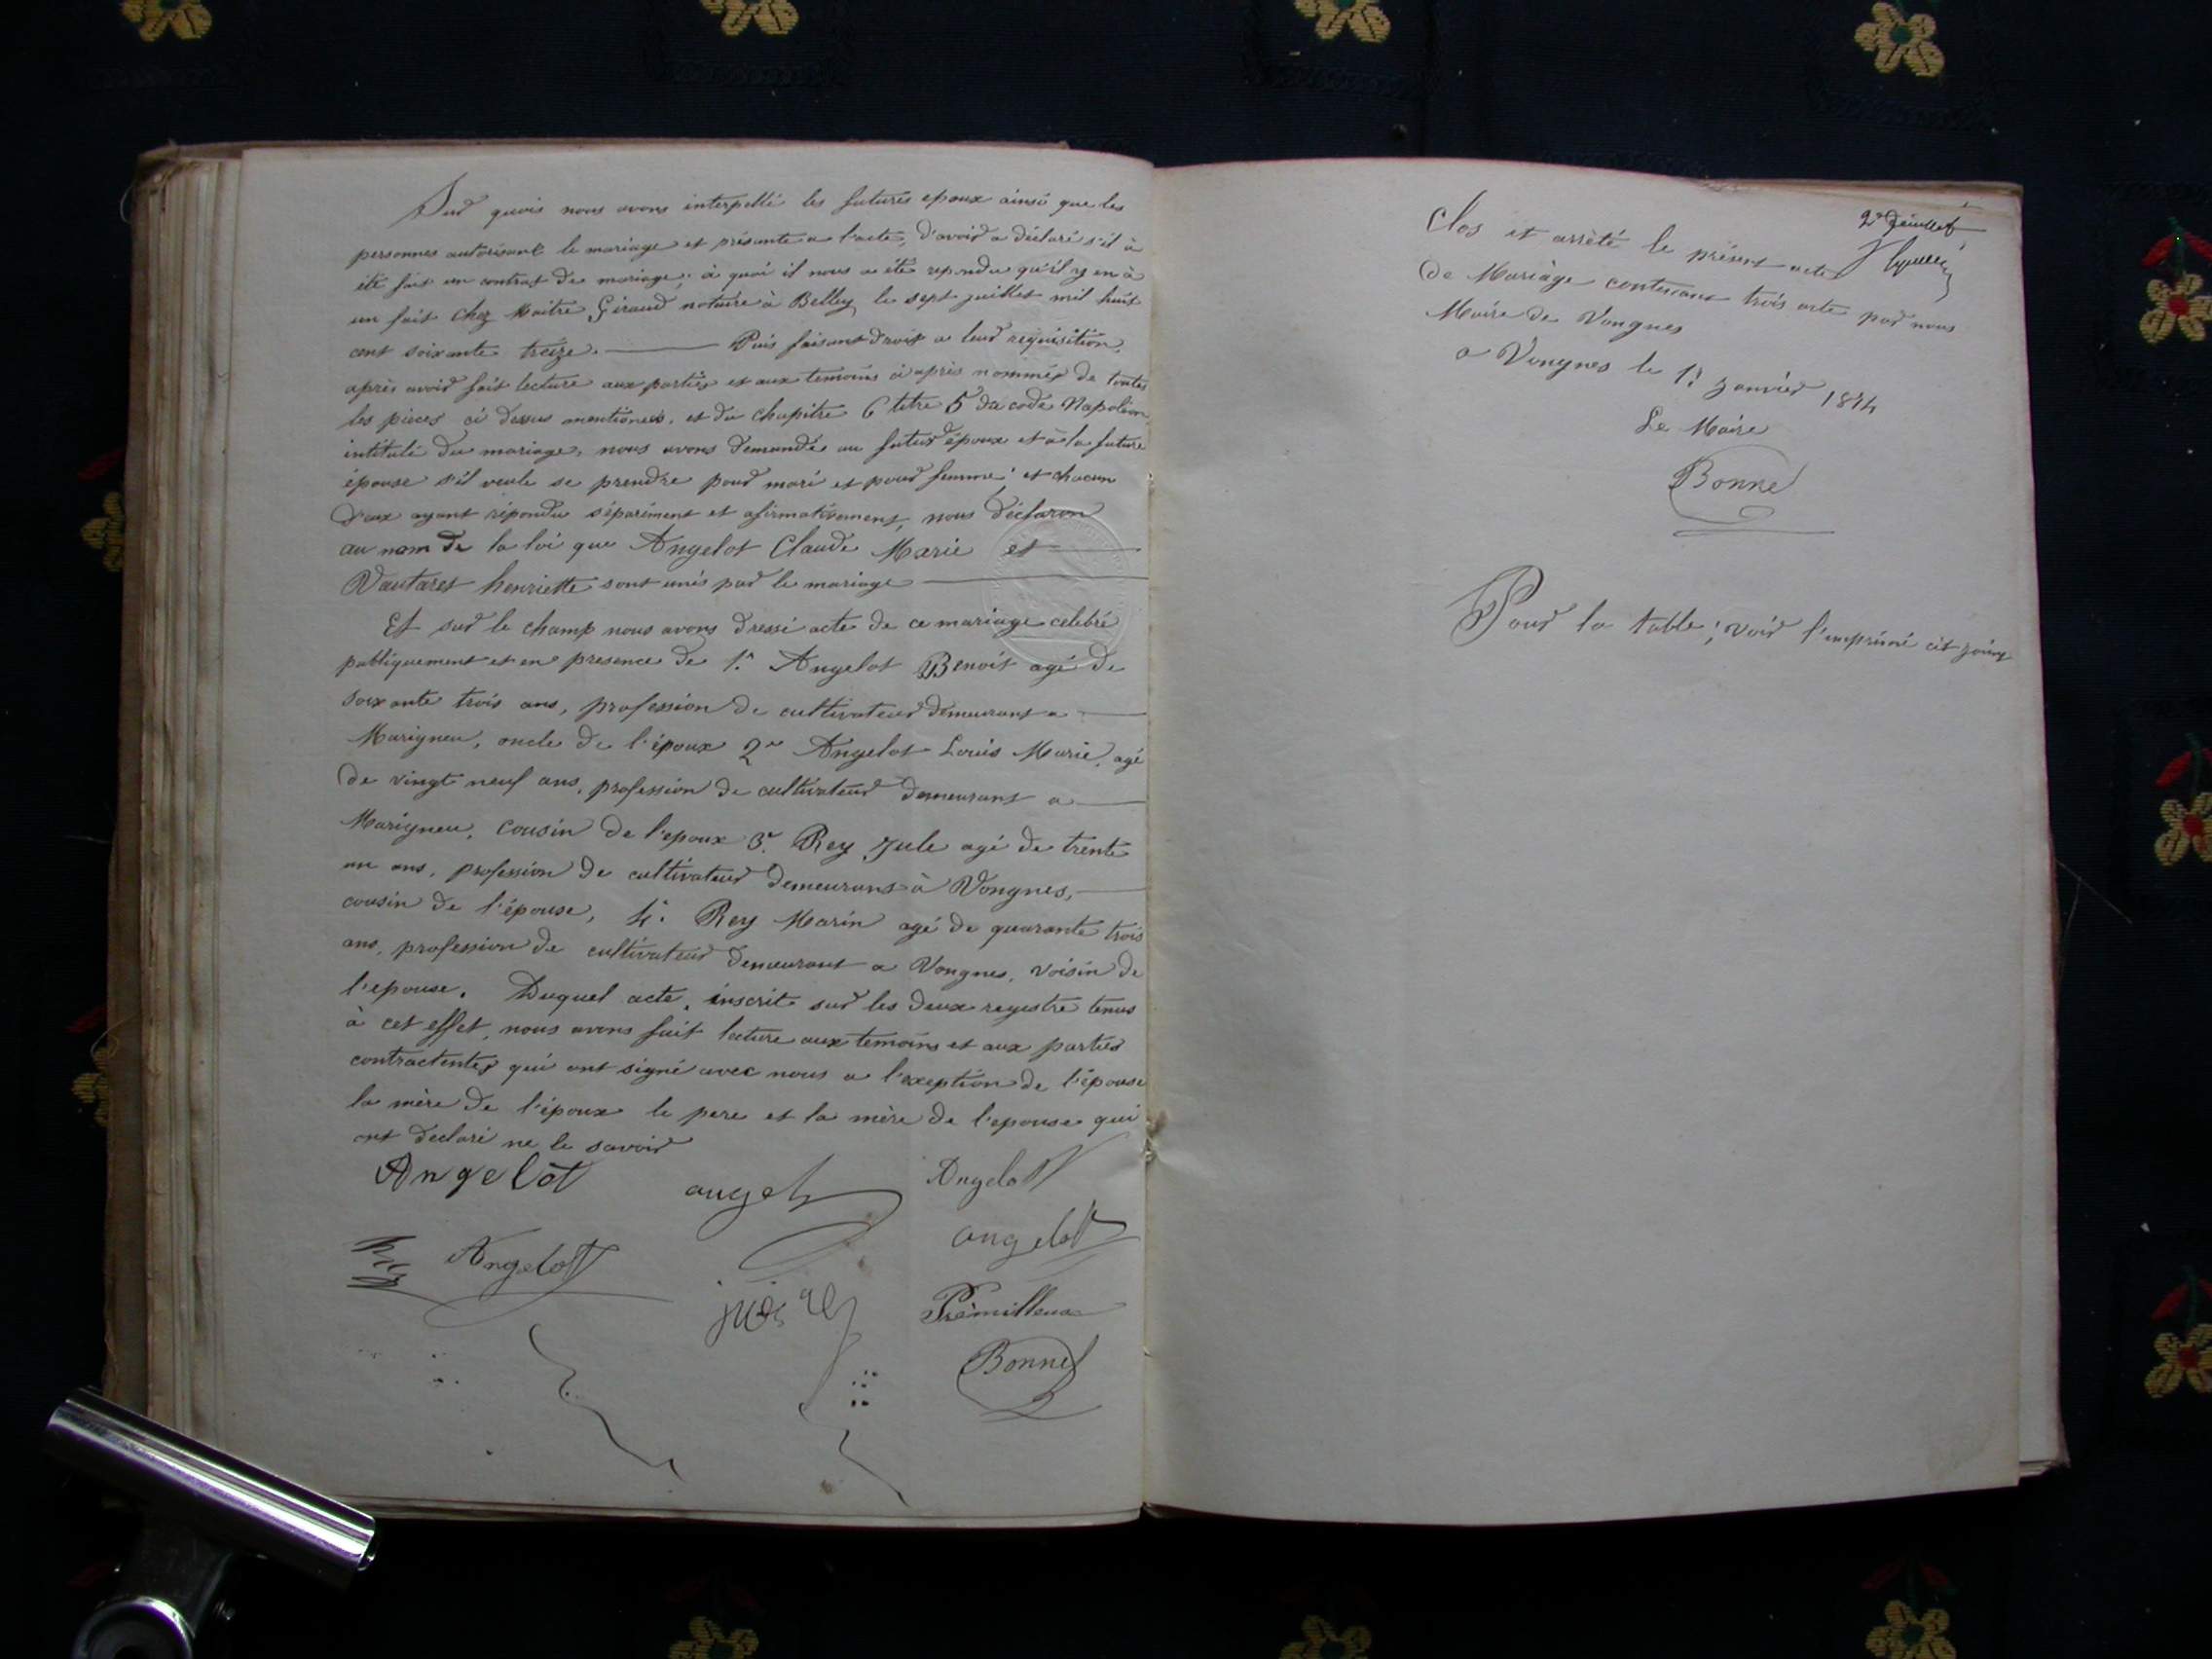 Sur quois nous avons interpellé les futures epoux ainsi que les
personnes autorisant le mariage et présante a l'acte, d'avoir a déclaré s'il à
été fait un contrat de mariage; à quoi il nous a été repondu qu'il y en à
un fait chez Maitre Giraud notaire à Belley le sept juillet mil huit
cent soixante treize. Puis faisant droit a leur requisition,
après avoir fait lecture aux parties et aux temoins ci après nommés de toutes
les pièces ci dessus mentionnés, et du chapitre 6 titre 5 du code Napoléon
intitulé du mariage, nous avons demandée au futur époux et à la future
épouse s'il veule se prendre pour mari et pour femme; et chacun
d'eux ayant répondu séparément et afirmativement, nous déclaron
au nom de la loi que Angelot Claude Marie et
Vautaret henriette sont unis par le mariage
Et sur le champ nous avons dressé acte de ce mariage celebré
publiquement et en presence de 1.° Angelot Benoit agé de
soixante trois ans, profession de cultivateur demeurant a
Marignieu, oncle de l'époux 2° Angelot Louis Marie, agé
de vingt neuf ans, profession de cultivateur demeurant a
Marignieu, cousin de l'epoux 3.° Rey Jule agé de trente
un ans, profession de cultivateur demeurant à Vongnes,
cousin de l'épouse, 4.° Rey Marin agé de quarante trois
ans, profession de cultivateur demeurant a Vongnes, voisin de
l'epouse. Duquel acte, inscrit sur les deux registre tenus
à cet effet, nous avons fait lecture aux temoins et aux parties
contractentes qui ont signé avec nous a l'exeption de l'épouse
la mère de l'époux le pere et la mère de l'epouse qui
ont declaré ne le savoir
Angelot angel Angelot
angelot
Rey Angelot
Prémilleux
Bonnet
2e feuillet
Clos et arrêté le présent acte
de Mariage contenant trois acte par nous
Maire de Vongnes
a Vongnes le 1.er Janvier 1874
Le Maire
Bonnet
Pour la table; voir l'imprimé cit joint